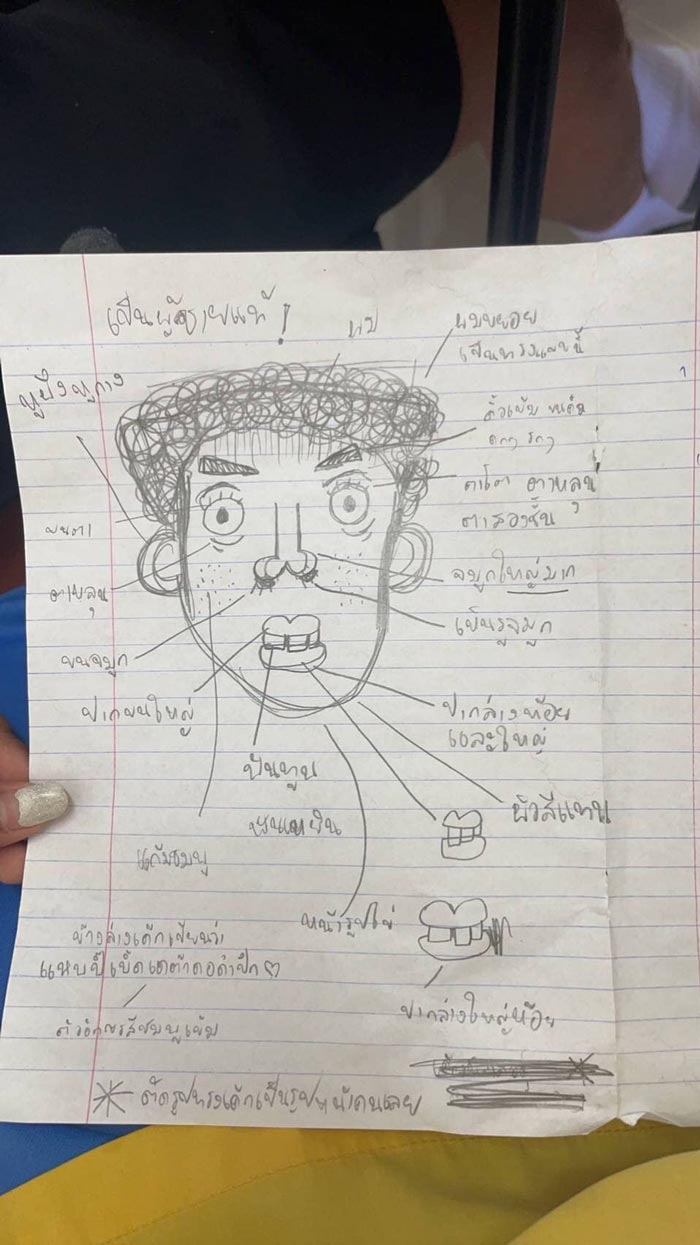 เป็นผู้ชายแท้!
ผม
ผมหยอย
เป็นทรงแบบนี้
หูกาง
คิ้วเข้ม ขนคิ้ว
ดกๆ
ตาโต ตาหลุน
ตาสองชั้น
ขนตา
จมูกใหญ่มาก
ตาหลุน
เห็นรูจมูก
ขนจมูก
ปากบนใหญ่
ปากล่างห้อย
และใหญ่
ฟันทูน
ฟันเหยิน
ผิวสีแทน
แก้มชมพู
หน้ารูปไข่
ข้างล่างเค้กเขียนว่า
แหบปี้เบิ้ดเดต้า
ปากล่างใหญ่ห้อย
ตัวอักษรสีชมพูเข้ม
ตัดรูปทรงเค้กเป็นรูปหน้าคนเลย